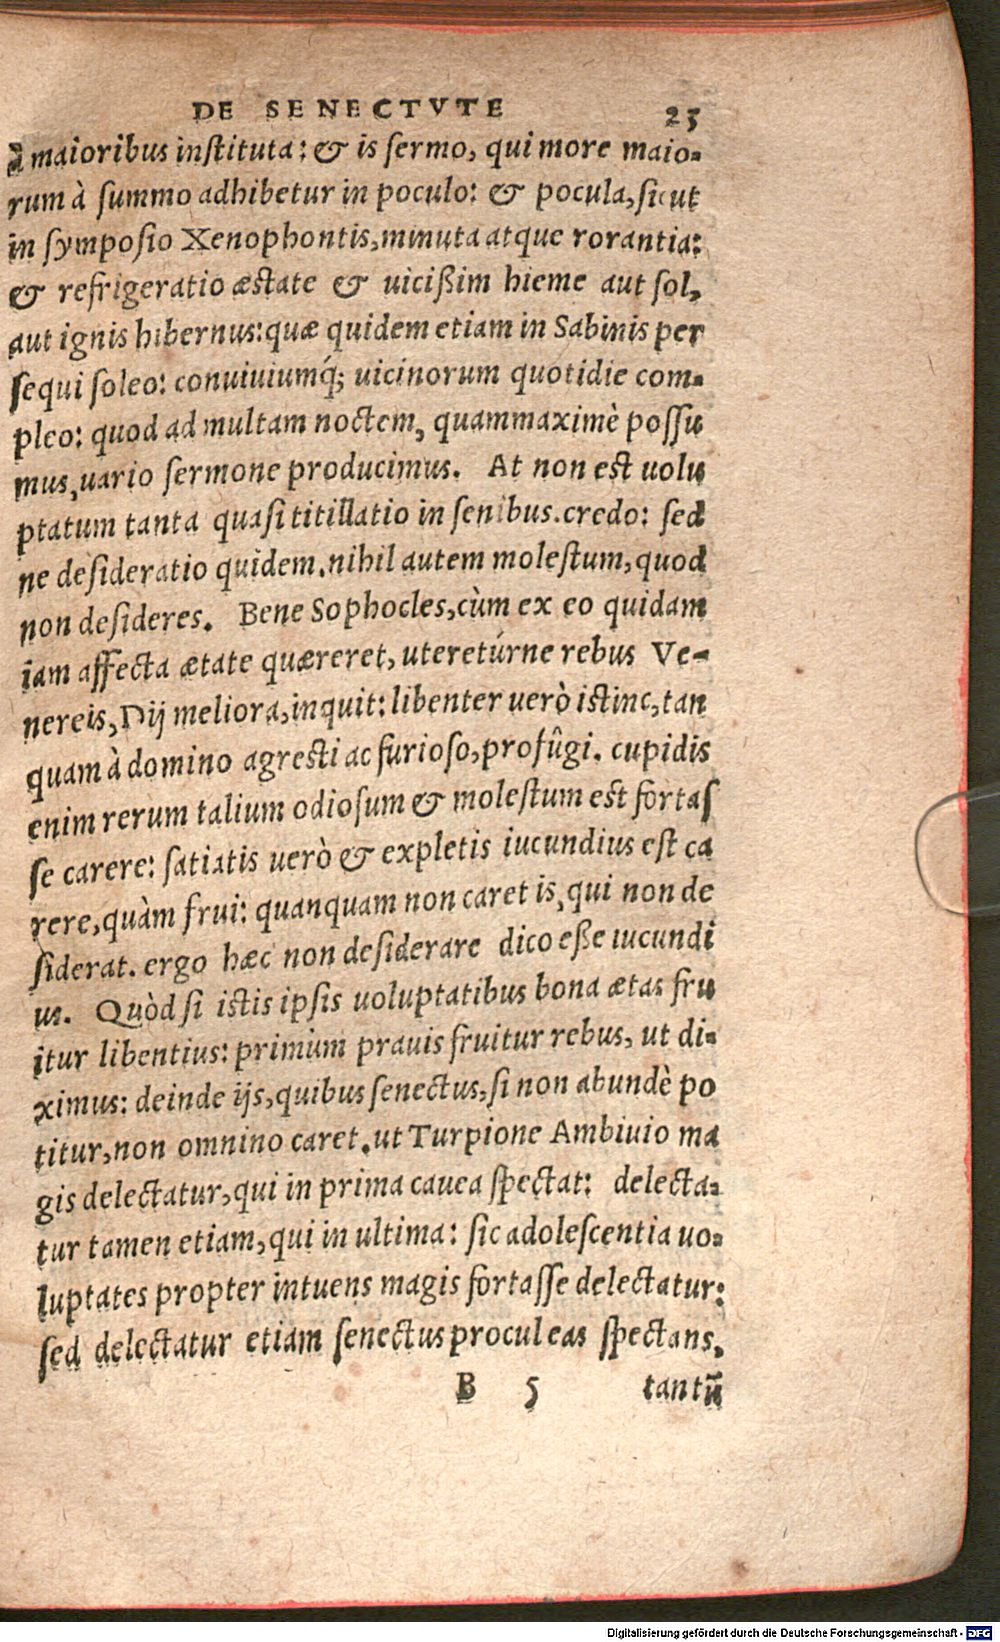 DE SENECTVTE 25
à maioribus instituta: & is sermo, qui more maio-
rum à summo adhibetur in poculo: & pocula, sicut
in symposio Xenophontis, minuta atque rorantia:
& refrigeratio æstate & uicißim hieme aut sol,
aut ignis hibernus: quæ quidem etiam in Sabinis per
sequi soleo: conuiuiumq́; uicinorum quotidie com-
pleo: quod ad multam noctem, quammaximè possu
mus, uario sermone producimus. At non est uolu
ptatum tanta quasi titillatio in senibus. credo: sed
ne desideratio quidem. nihil autem molestum, quod
non desideres. Bene Sophocles, cùm ex eo quidam
iam affecta ætate quæreret, utereturne rebus Ve-
nereis, Dij meliora, inquit: libenter uerò istinc, tan
quam à domino agresti ac furioso, profûgi. cupidis
enim rerum talium odiosum & molestum est fortas
se carere: satiatis uerò & expletis iucundius est ca
rere, quàm frui: quanquam non caret is, qui non de
siderat. ergo hæc non desiderare dico eße iucundi
us. Quòd si istis ipsis uoluptatibus bona ætas fru
itur libentius: primùm prauis fruitur rebus, ut di-
ximus: deinde ijs, quibus senectus, si non abundè po
titur, non omnino caret. ut Turpione Ambiuio ma
gis delectatur, qui in prima cauea spectat: delecta-
tur tamen etiam, qui in ultima: sic adolescentia uo-
luptates propter intuens magis fortasse delectatur:
sed delectatur etiam senectus procul eas spectans,
B 5 tantū
Digitalisierung gefördert durch die Deutsche Forschungsgemeinschaft - DFG